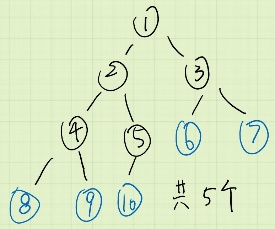 ①
② ③
④ ⑤ ⑥ ⑦
⑧ ⑨ ⑩ 共 5个